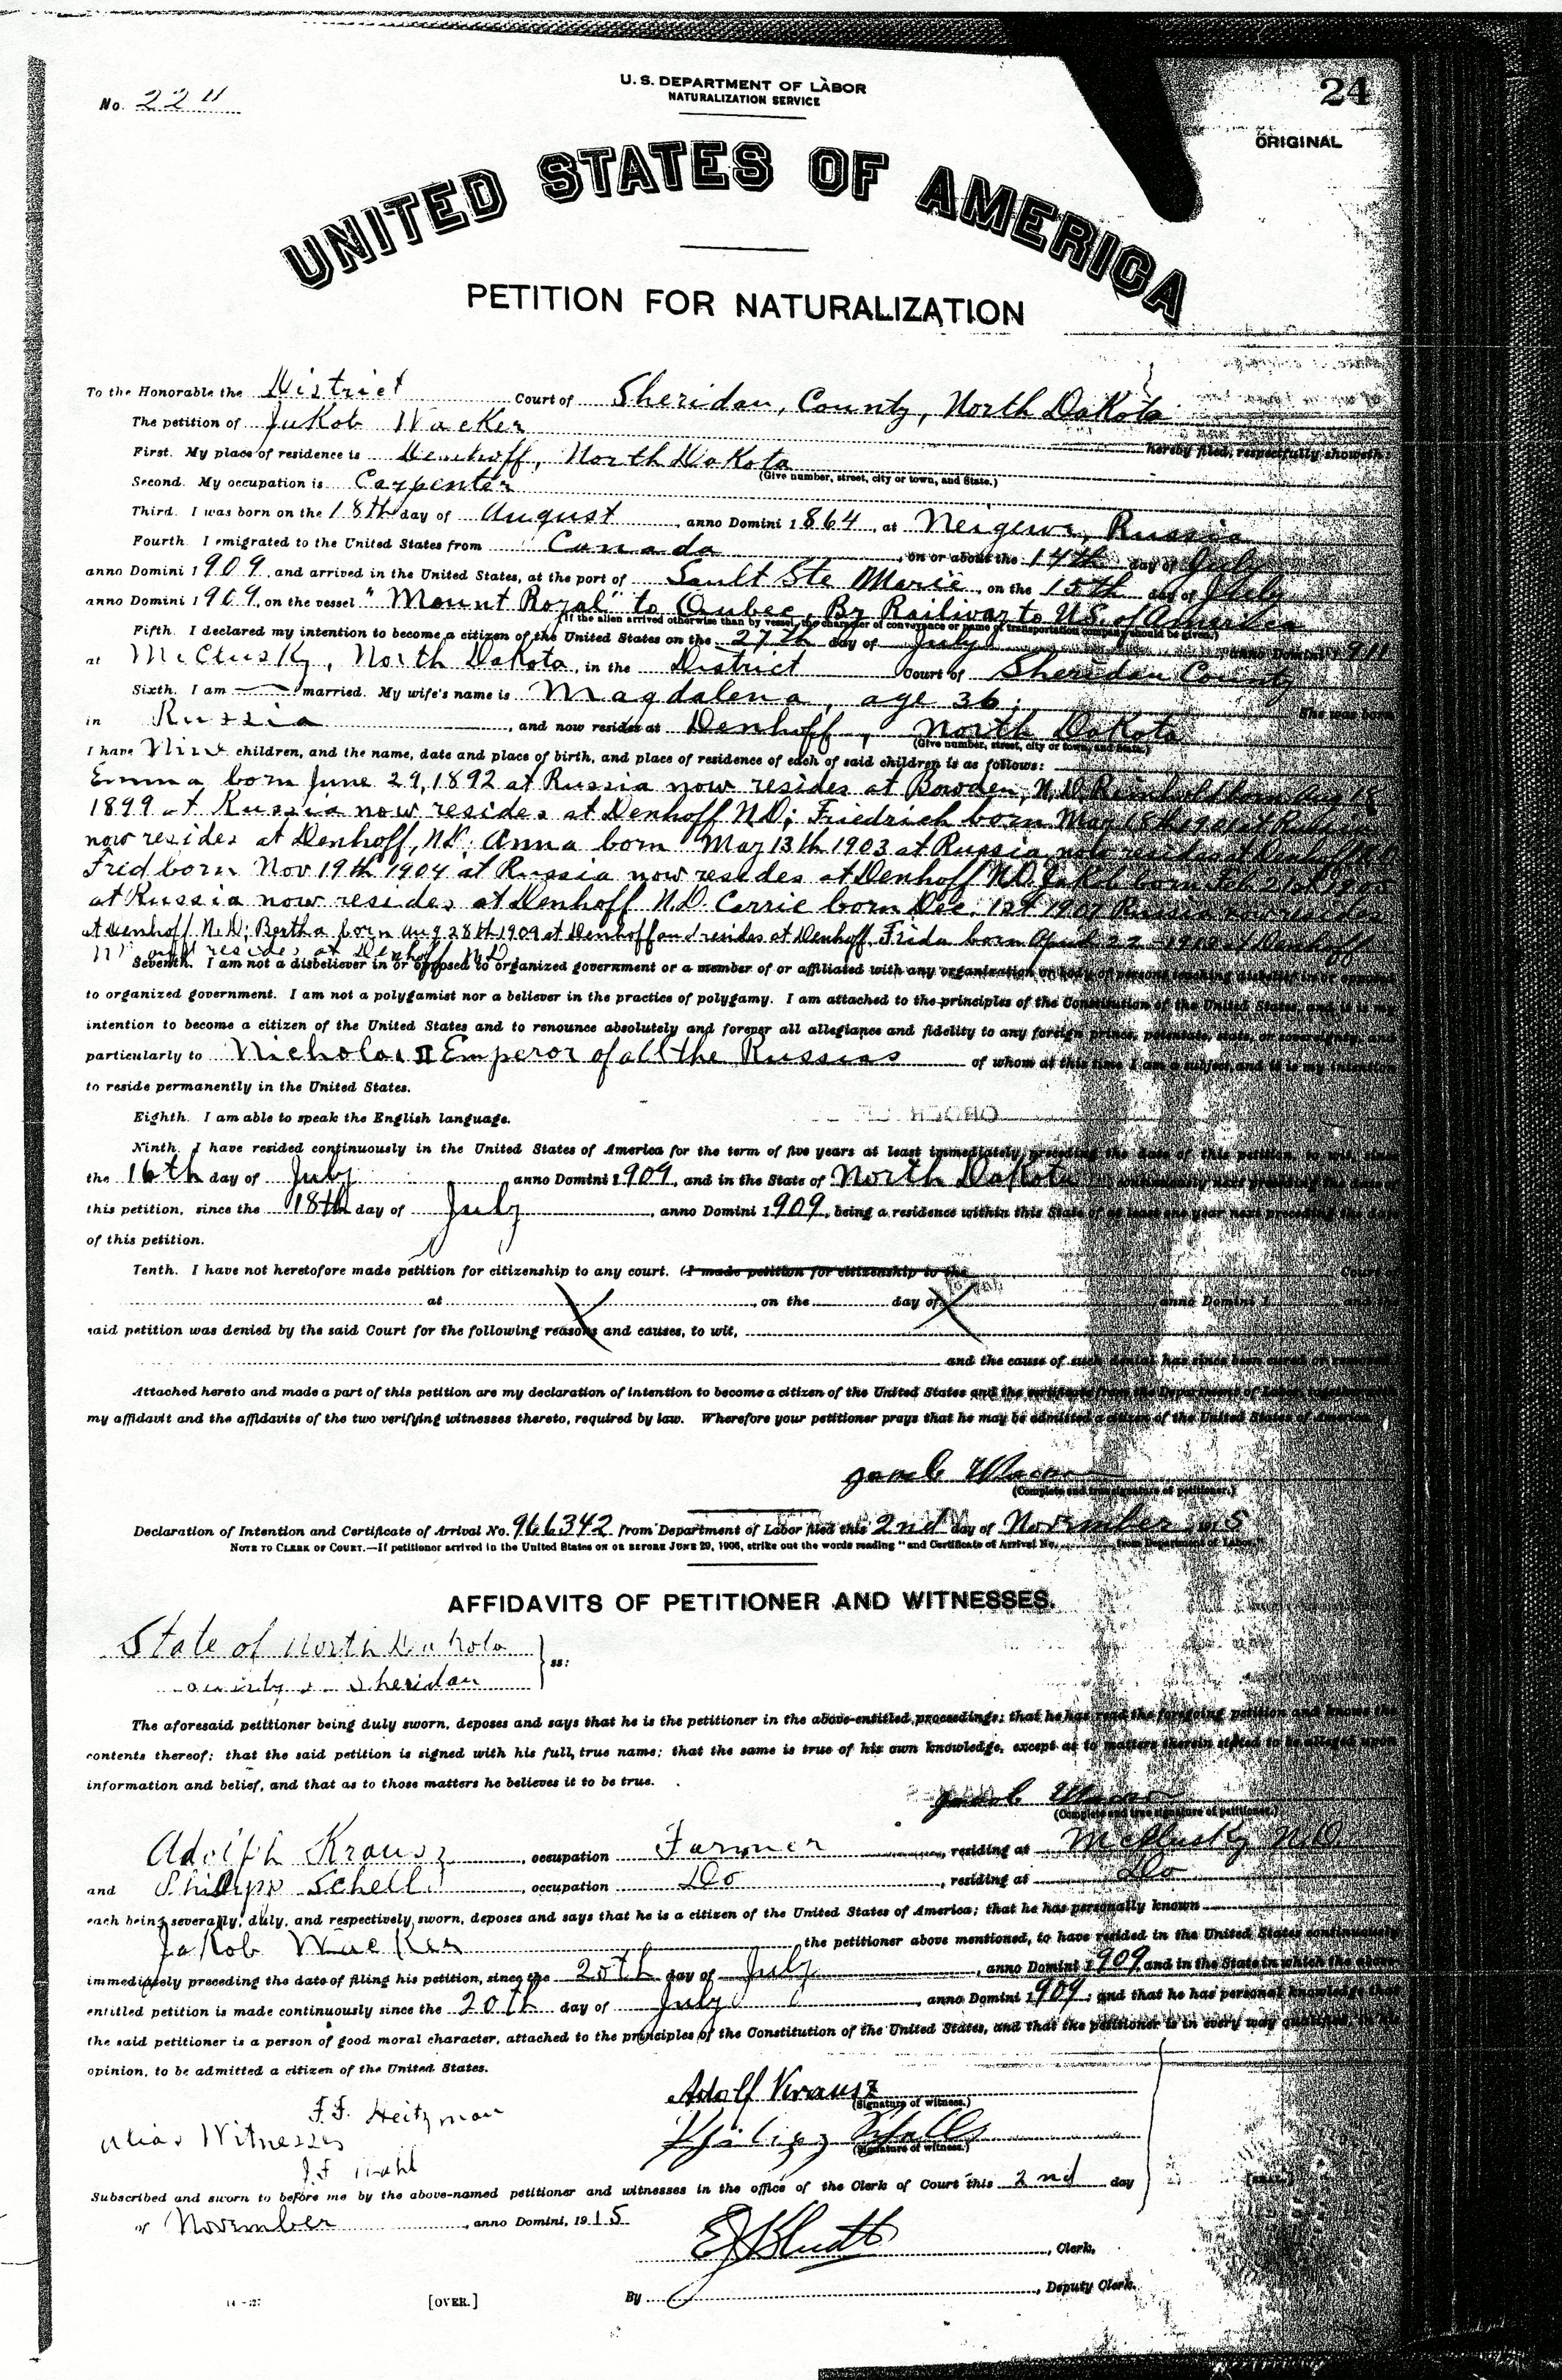 No. 2211
U. S. DEPARTMENT OF LABOR
NATURALIZATION SERVICE
24
ORIGINAL
UNITED STATES OF AMERICA
PETITION FOR NATURALIZATION
To the Honorable the District Court of Sheridan, County, North Dakota
The petition of Jakob Wacker hereby filed, respectfully showeth:
First. My place of residence is Denhoff, North Dakota
(Give number, street, city or town, and State.)
Second. My occupation is Carpenter
Third. I was born on the 18th day of August, anno Domini 1864, at Russia
Fourth. I emigrated to the United States from Canada, on or about the 14th day of July
anno Domini 1909, and arrived in the United States, at the port of Sault Ste Marie, on the 15th day of July
anno Domini 1909, on the vessel "Mount Royal" to Qubec, By Railway to U.S. of America
(If the alien arrived otherwise than by vessel, the character of conveyance or name of transportation company should be given.)
Fifth. I declared my intention to become a citizen of the United States on the 27th day of July, anno Domini 1911
at McClusky, North Dakota, in the District Court of Sheridan County
Sixth. I am married. My wife's name is Magdalena, age 36; She was born
in Russia, and now resides at Denhoff, North Dakota
(Give number, street, city or town, and State.)
I have Nine children, and the name, date and place of birth, and place of residence of each of said children is as follows:
Emma born June 29, 1892 at Russia now resides at Bowden, N.D. Reinhold born Aug 18
1899 at Russia now resides at Denhoff N.D; Friedrich born May 18th 1901 at Russia
now resides at Denhoff, N.D. Anna born May 13th 1903 at Russia now resides at Denhoff N.D
Fred born Nov 19th 1904 at Russia now resides at Denhoff N.D. Jakob born Feb 21st
at Russia now resides at Denhoff N.D. Carrie born Dec. 1st 1907 Russia now resides
at Denhoff N.D; Bertha born Aug 28th 1909 at Denhoff and resides at Denhoff, Frida born April 22 at Denhoff
and resides at Denhoff N.D
Seventh. I am not a disbeliever in or opposed to organized government or a member of or affiliated with any organization or body of persons teaching disbelief in or opposed
to organized government. I am not a polygamist nor a believer in the practice of polygamy. I am attached to the principles of the Constitution of the United States, and it is my
intention to become a citizen of the United States and to renounce absolutely and forever all allegiance and fidelity to any foreign prince, potentate, state, or sovereignty, and
particularly to Nicholas II Emperor of all the Russias of whom at this time I am a subject, and it is my intention
to reside permanently in the United States.
Eighth. I am able to speak the English language.
Ninth. I have resided continuously in the United States of America for the term of five years at least immediately preceding the date of this petition, to wit, since
the 16th day of July, anno Domini 1909, and in the State of North Dakota continuously next preceding the date of
this petition, since the 18th day of July, anno Domini 1909, being a residence within this State of at least one year next preceding the date
of this petition.
Tenth. I have not heretofore made petition for citizenship to any court. (I made petition for citizenship to the Court
at, on the day of, anno Domini 1, and
said petition was denied by the said Court for the following reasons and causes, to wit,
and the cause of such denial has since been cured or removed.
Attached hereto and made a part of this petition are my declaration of intention to become a citizen of the United States and the certificate from the Department of Labor, together with
my affidavit and the affidavits of the two verifying witnesses thereto, required by law. Wherefore your petitioner prays that he may be admitted a citizen of the United States of America.
(Complete and true signature of petitioner.)
Declaration of Intention and Certificate of Arrival No. 966342 from Department of Labor filed this 2nd day of November, 1915
NOTE TO CLERK OF COURT.—If petitioner arrived in the United States ON OR BEFORE JUNE 29, 1906, strike out the words reading "and Certificate of Arrival No. from Department of Labor."
AFFIDAVITS OF PETITIONER AND WITNESSES.
State of North Dakota
ss:
Sheridan
The aforesaid petitioner being duly sworn, deposes and says that he is the petitioner in the above-entitled proceedings; that he has read the foregoing petition and knows the
contents thereof; that the said petition is signed with his full, true name; that the same is true of his own knowledge, except as to matters therein stated to be alleged upon
information and belief, and that as to those matters he believes it to be true.
(Complete and true signature of petitioner.)
Adolph Krausz, occupation Farmer, residing at McClusky N.D.
and Philipp Schell, occupation Do, residing at Do
each being severally, duly, and respectively sworn, deposes and says that he is a citizen of the United States of America; that he has personally known
Jakob Wacker the petitioner above mentioned, to have resided in the United States continuously
immediately preceding the date of filing his petition, since the 20th day of July, anno Domini 1909, and in the State in which the above
entitled petition is made continuously since the 20th day of July, anno Domini 1909; and that he has personal knowledge that
the said petitioner is a person of good moral character, attached to the principles of the Constitution of the United States, and that the petitioner is in every way qualified, in his
opinion, to be admitted a citizen of the United States.
Adolf Krausz
(Signature of witness.)
F.F. Heitzman
alias Witnesses
(Signature of witness.)
J.F. Wahl
Subscribed and sworn to before me by the above-named petitioner and witnesses in the office of the Clerk of Court this 2nd day
of November, anno Domini, 1915
, Clerk.
By, Deputy Clerk.
[OVER.]